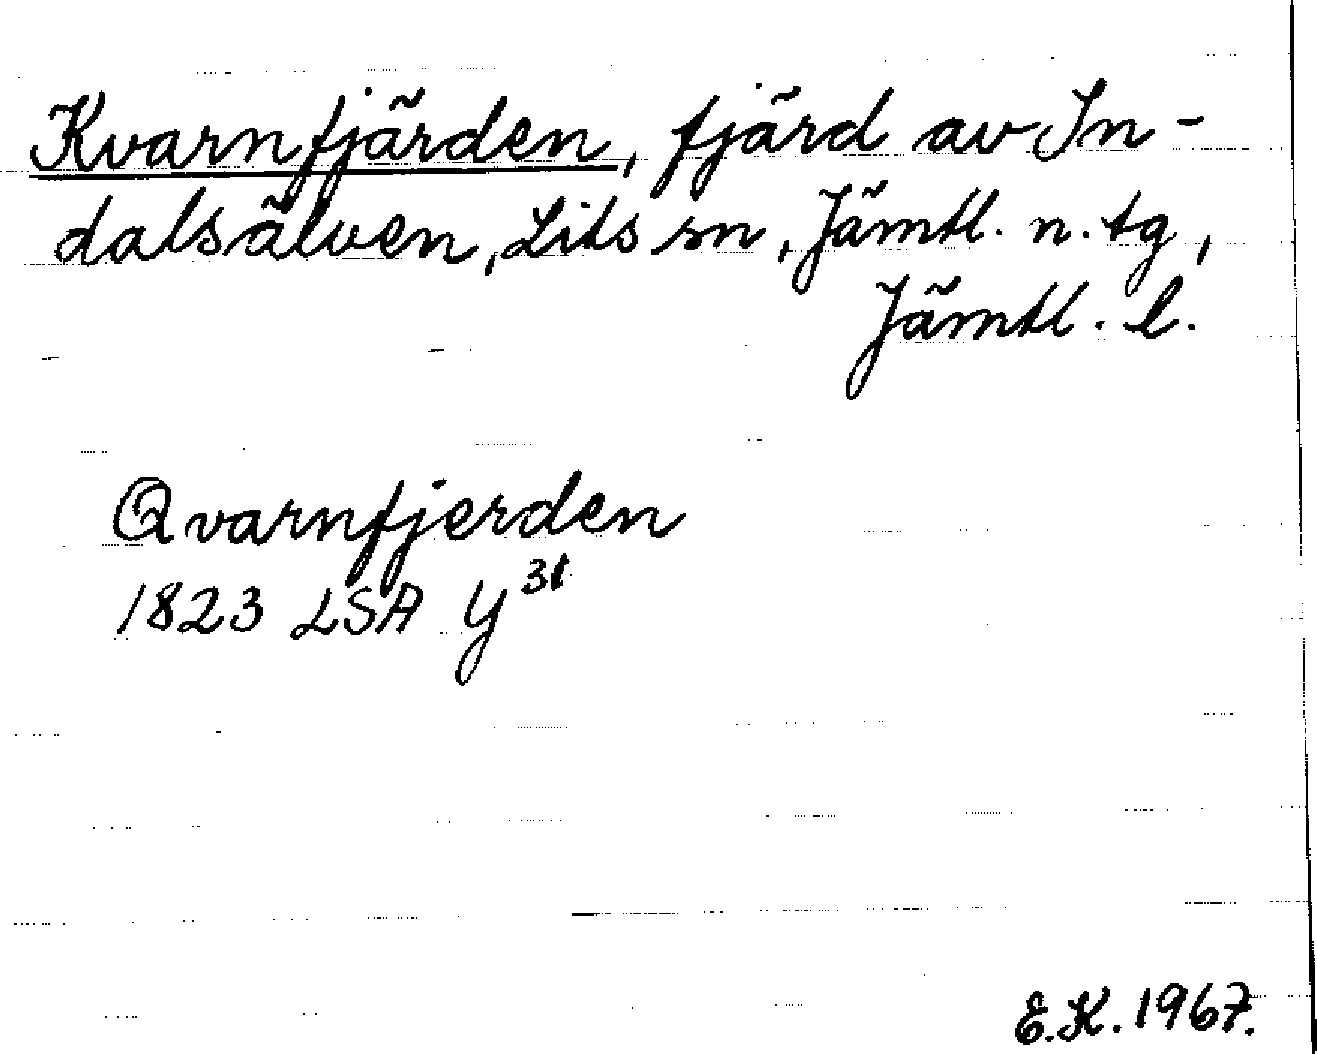 Kvarnfjärden, fjärd av In-
dalsälven, Lits sn, Jämtl. n. tg,
Jämtl. l.
Qvarnfjerden
1823 LSA Y³¹
E.K. 1967.